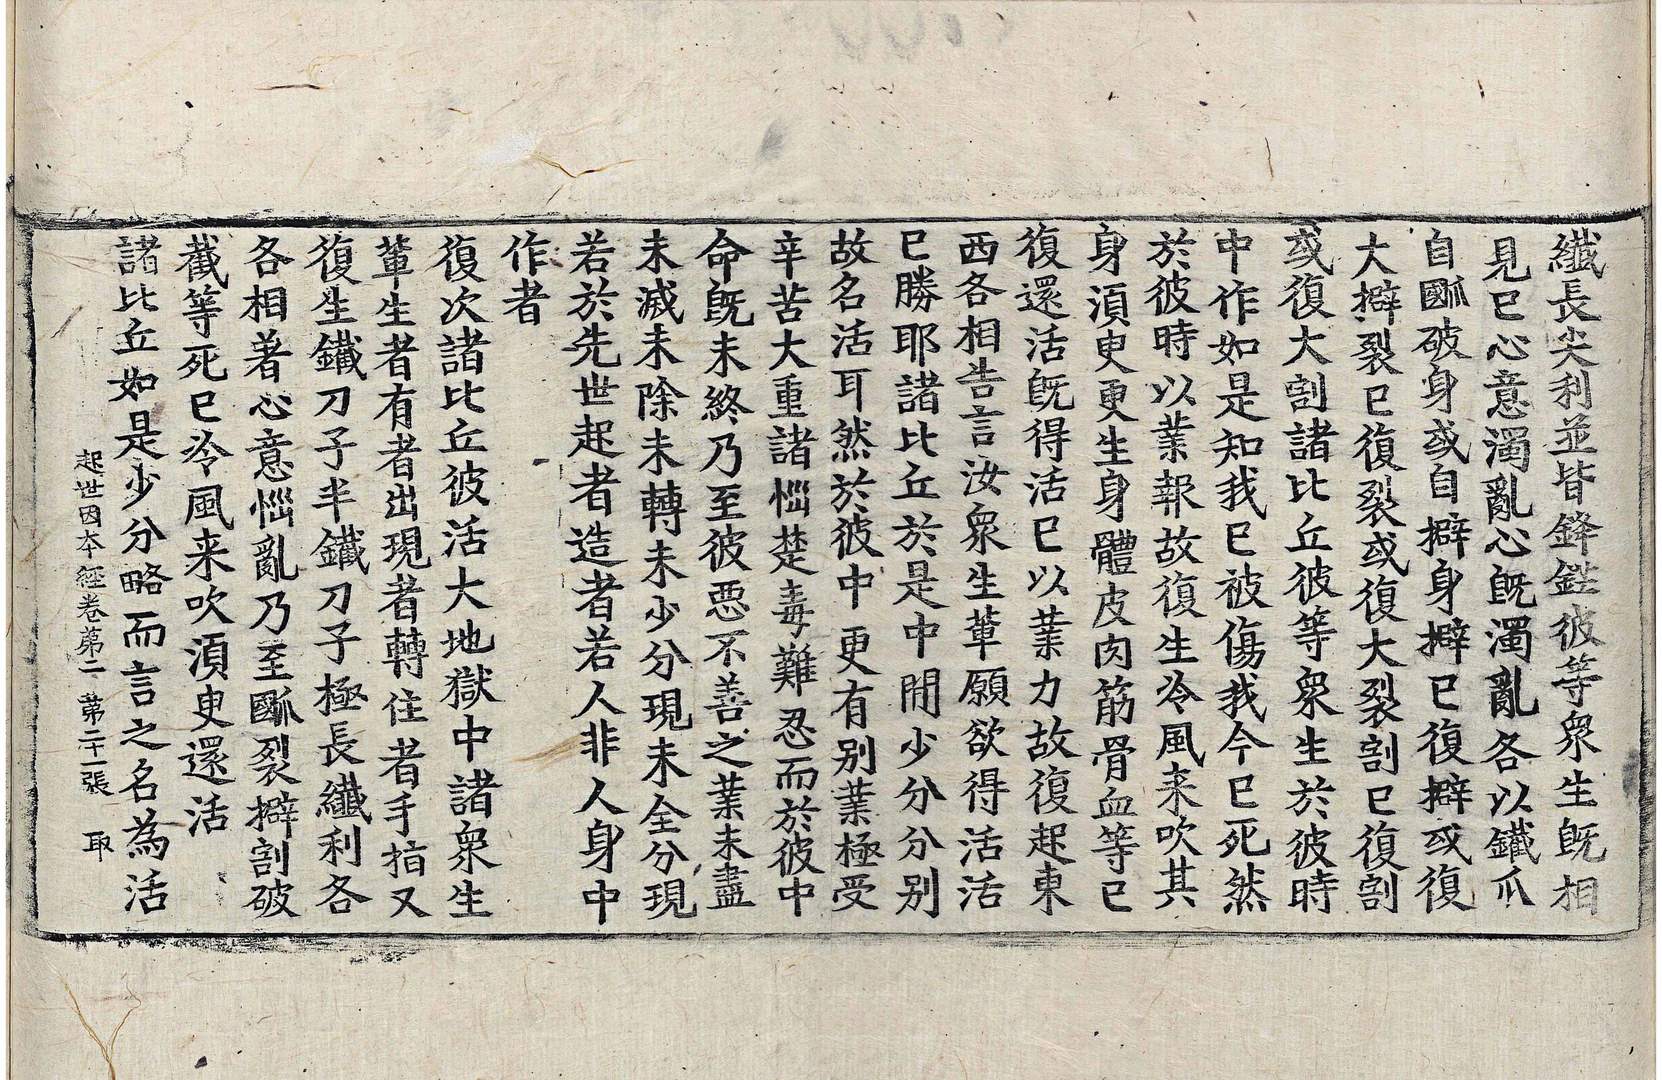 纖長尖利並皆鋒鋩彼等衆生旣相
見已心意濁亂心旣濁亂各以鐵爪
自𤔩破身或自擗身擗已復擗或復
大擗裂已復裂或復大裂割已復割
或復大割諸比丘彼等衆生於彼時
中作如是知我已被傷我今已死然
於彼時以業報故復生冷風来吹其
身湏臾更生身體皮肉筋骨血等已
復還活旣得活已以業力故復起東
西各相告言汝衆生輩願欲得活活
已勝耶諸比丘於是中間少分分别
故名活耳然於彼中更有别業極受
辛苦大重諸惱楚毒難忍而於彼中
命旣未終乃至彼惡不善之業未盡
未滅未除未轉未少分現未全分現
若於先世起者造者若人非人身中
作者
復次諸比丘彼活大地獄中諸衆生
輩生者有者出現者轉住者手指又
復生鐵刀子半鐵刀子極長纖利各
各相著心意惱亂乃至𤔩裂擗割破
截等死已冷風来吹湏臾還活
諸比丘如是少分略而言之名為活
起世因本經卷苐二　苐二十一張　取